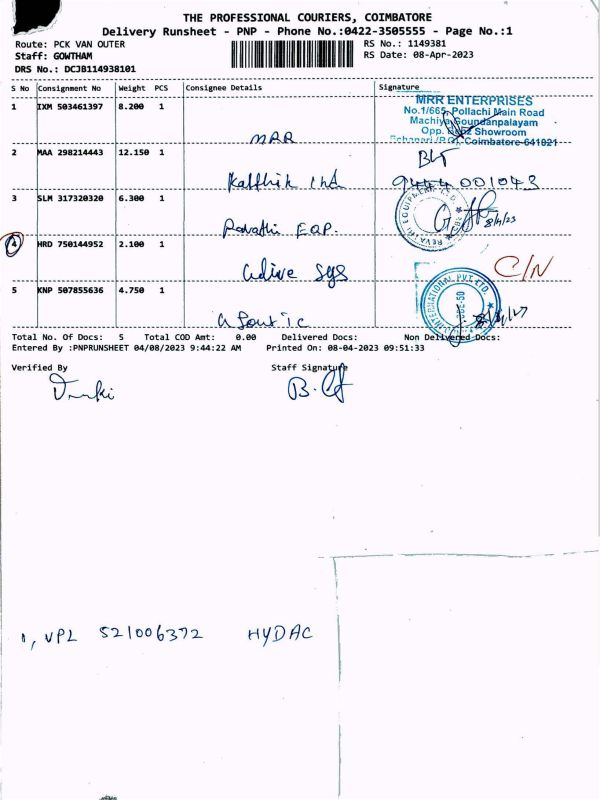 THE PROFESSIONAL COURIERS, COIMBATORE
Delivery Runsheet - PNP - Phone No.:0422-3505555 - Page No.:1
Route: PCK VAN OUTER
RS No.: 1149381
Staff: GOWTHAM
RS Date: 08-Apr-2023
DRS No.: DCJB114938101
S No Consignment No Weight PCS Consignee Details Signature
1 IXM 503461397 8.200 1
MRR ENTERPRISES
No.1/665, Pollachi Main Road
Machiya Goundanpalayam
Opp. Showroom
Coimbatore-641021
MRR
2 MAA 298214443 12.150 1
Karthik Ind
9444001043
3 SLM 317320320 6.300 1
Revathi EQP.
REVATHI EQUIPMENT LTD.
8/4/23
4 HRD 750144952 2.100 1
Sys
C/N
5 KNP 507855636 4.750 1
INTERNATIONAL PVT. LTD.
Total No. Of Docs: 5 Total COD Amt: 0.00 Delivered Docs: Non Delivered Docs:
Entered By :PNPRUNSHEET 04/08/2023 9:44:22 AM Printed On: 08-04-2023 09:51:33
Verified By
Staff Signature
1, VPL 521006372 HYDAC